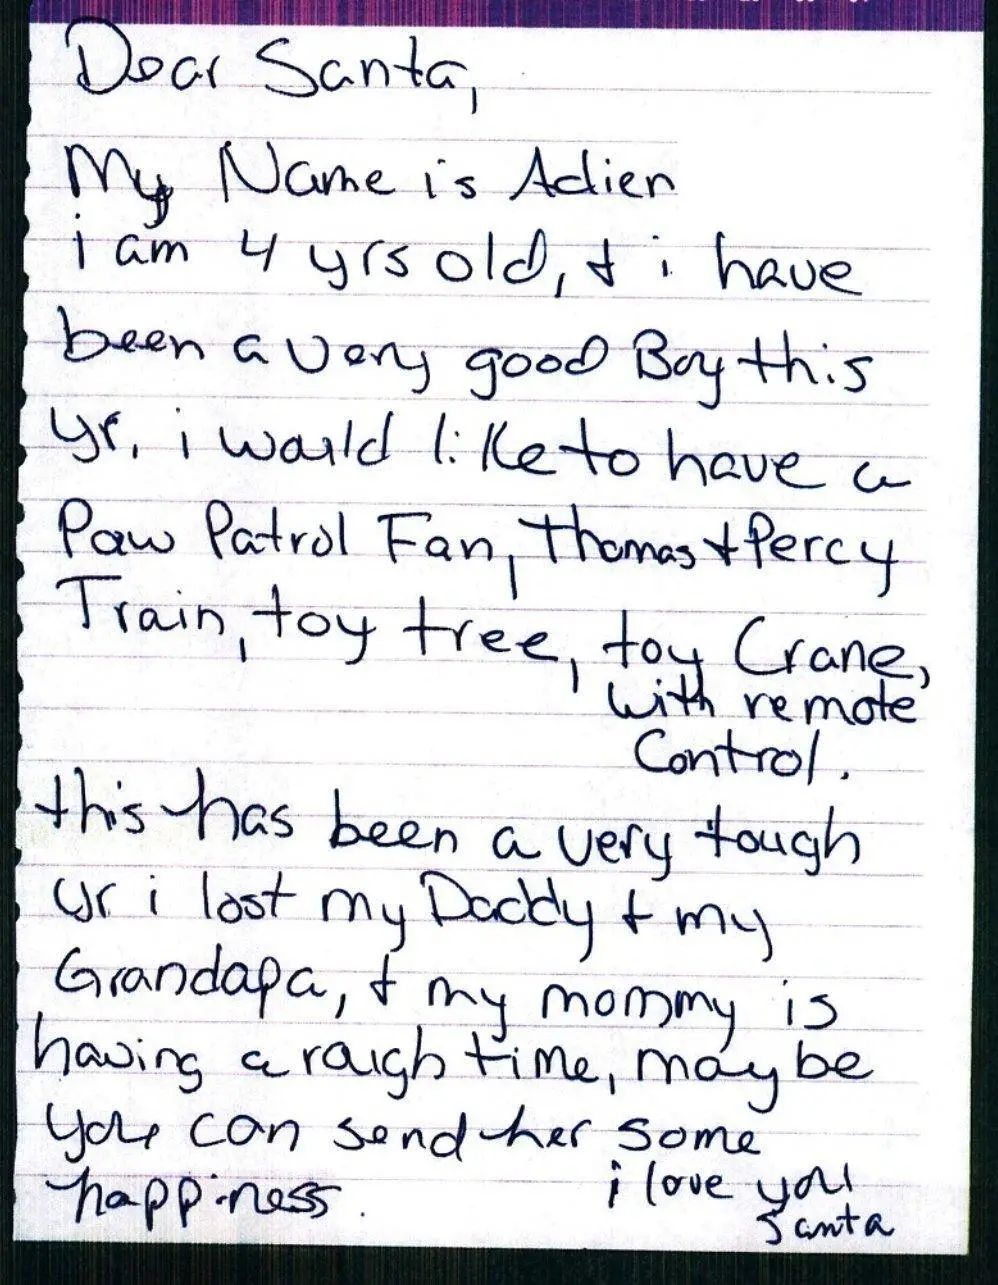 Dear Santa,
My Name is Adien
i am 4 yrs old, & i have
been a very good Boy this
yr. i would like to have a
Paw Patrol Fan, Thomas & Percy
Train, toy tree, toy Crane,
with remote
Control.
this has been a very tough
yr i lost my Daddy & my
Grandapa, & my mommy is
having a rough time, may be
you can send her some
happiness.
i love you
Santa